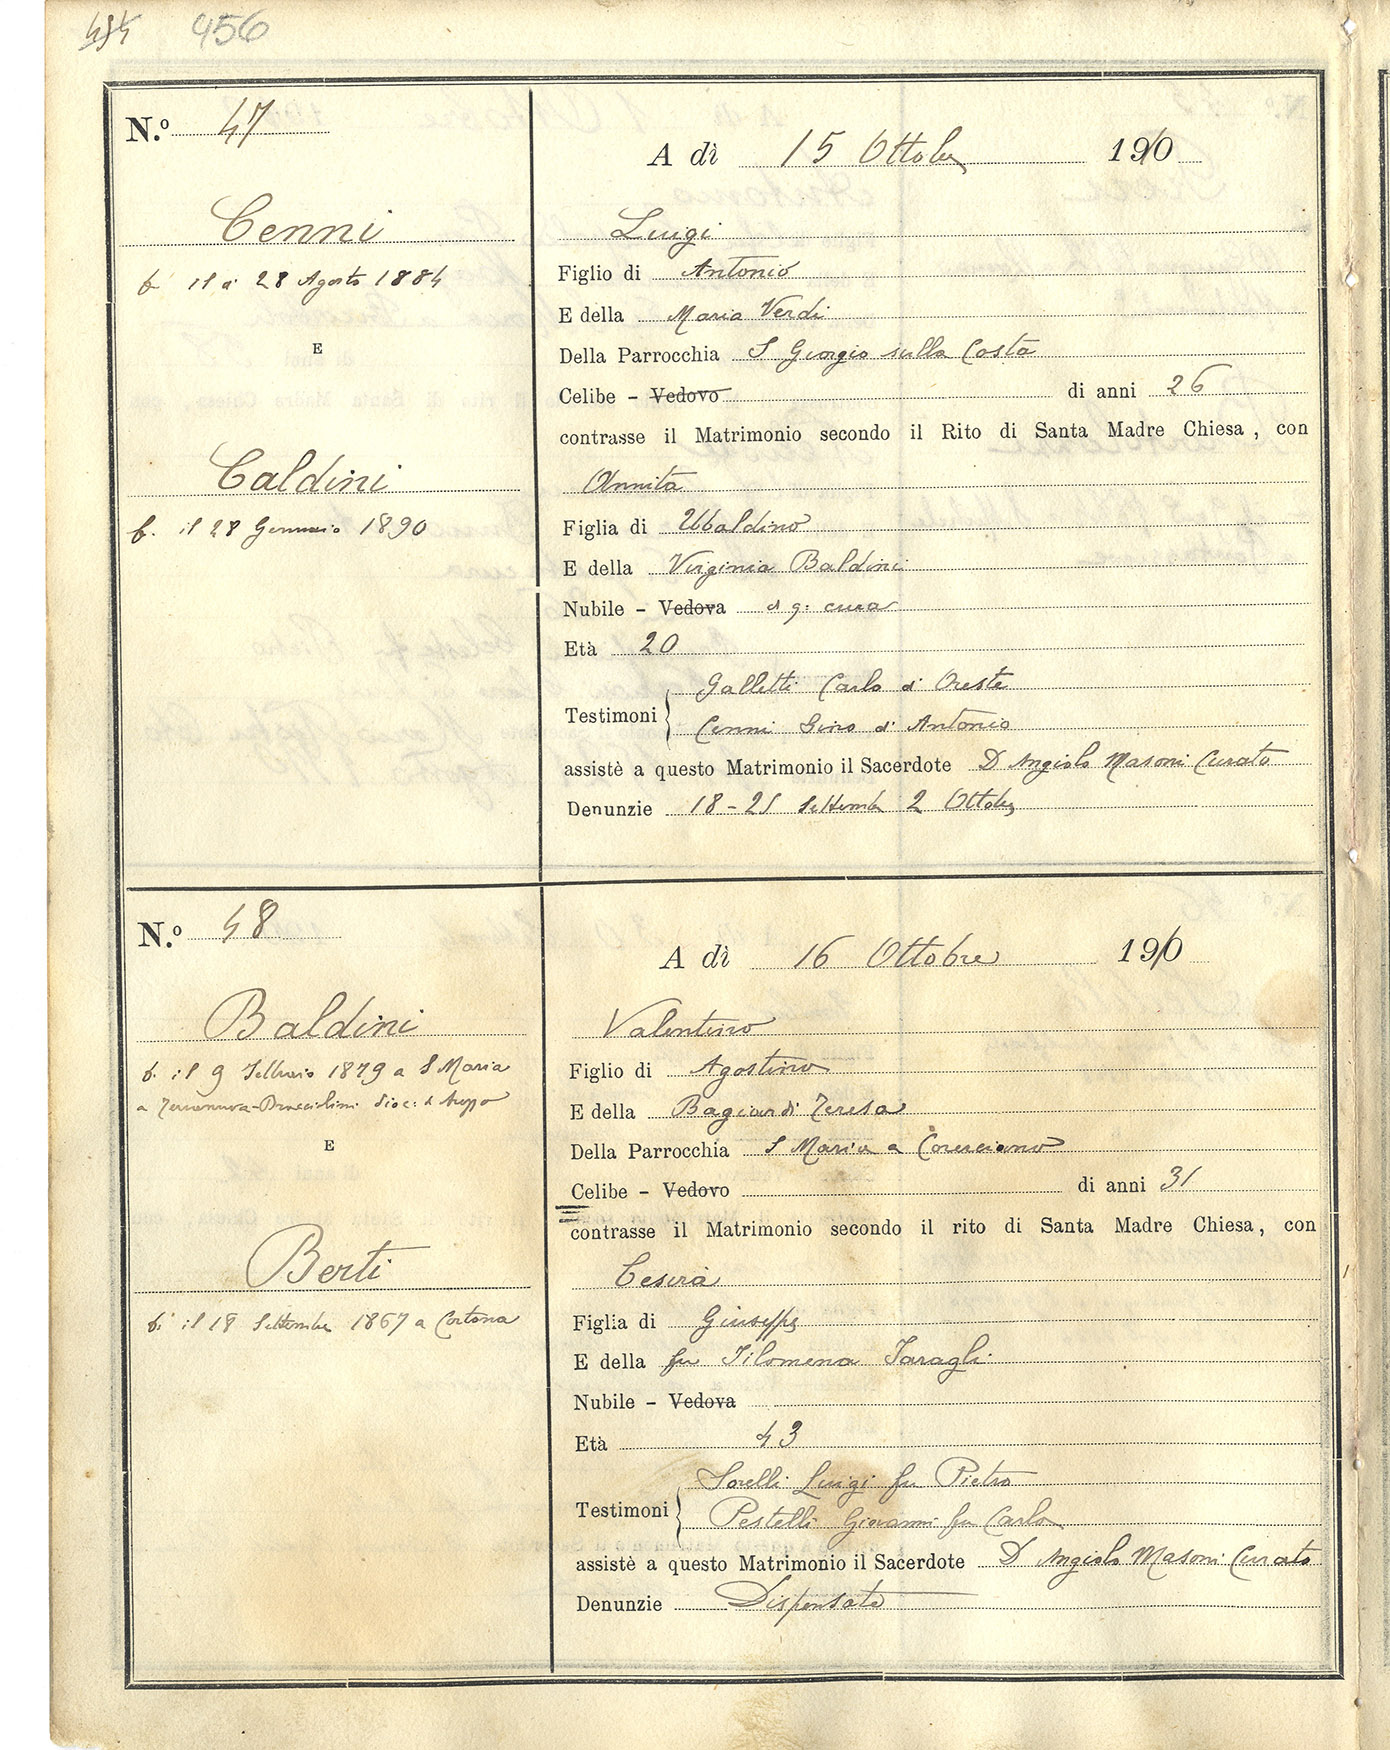 434 456
N.º 47
A dì 15 Ottobre 1910
Cenni
Luigi
b. il dì 28 Agosto 1884
Figlio di Antonio
E della Maria Verdi
E
Della Parrocchia S Giorgio sulla Costa
Celibe - Vedovo di anni 26
contrasse il Matrimonio secondo il Rito di Santa Madre Chiesa, con
Caldini
Annita
b. il 28 Gennaio 1890
Figlia di Ubaldino
E della Virginia Baldini
Nubile - Vedova di q. cura
Età 20
Testimoni Galletti Carlo di Oreste
Cenni Gino di Antonio
assistè a questo Matrimonio il Sacerdote D Angiolo Masoni Curato
Denunzie 18-25 Settembre 2 Ottobre
N.º 48
A dì 16 Ottobre 1910
Baldini
Valentino
b. il 9 Febbraio 1879 a S Maria
a Terranuova-Bracciolini dioc: d Arezzo
Figlio di Agostino
E della Bagiardi Teresa
E
Della Parrocchia S Maria a Coverciano
Celibe - Vedovo di anni 31
contrasse il Matrimonio secondo il rito di Santa Madre Chiesa, con
Berti
Cesira
b. il 18 Settembre 1867 a Cortona
Figlia di Giuseppe
E della fu Filomena Faragli
Nubile - Vedova
Età 43
Testimoni Sorelli Luigi fu Pietro
Pestelli Giovanni fu Carlo
assistè a questo Matrimonio il Sacerdote D Angiolo Masoni Curato
Denunzie Dispensate